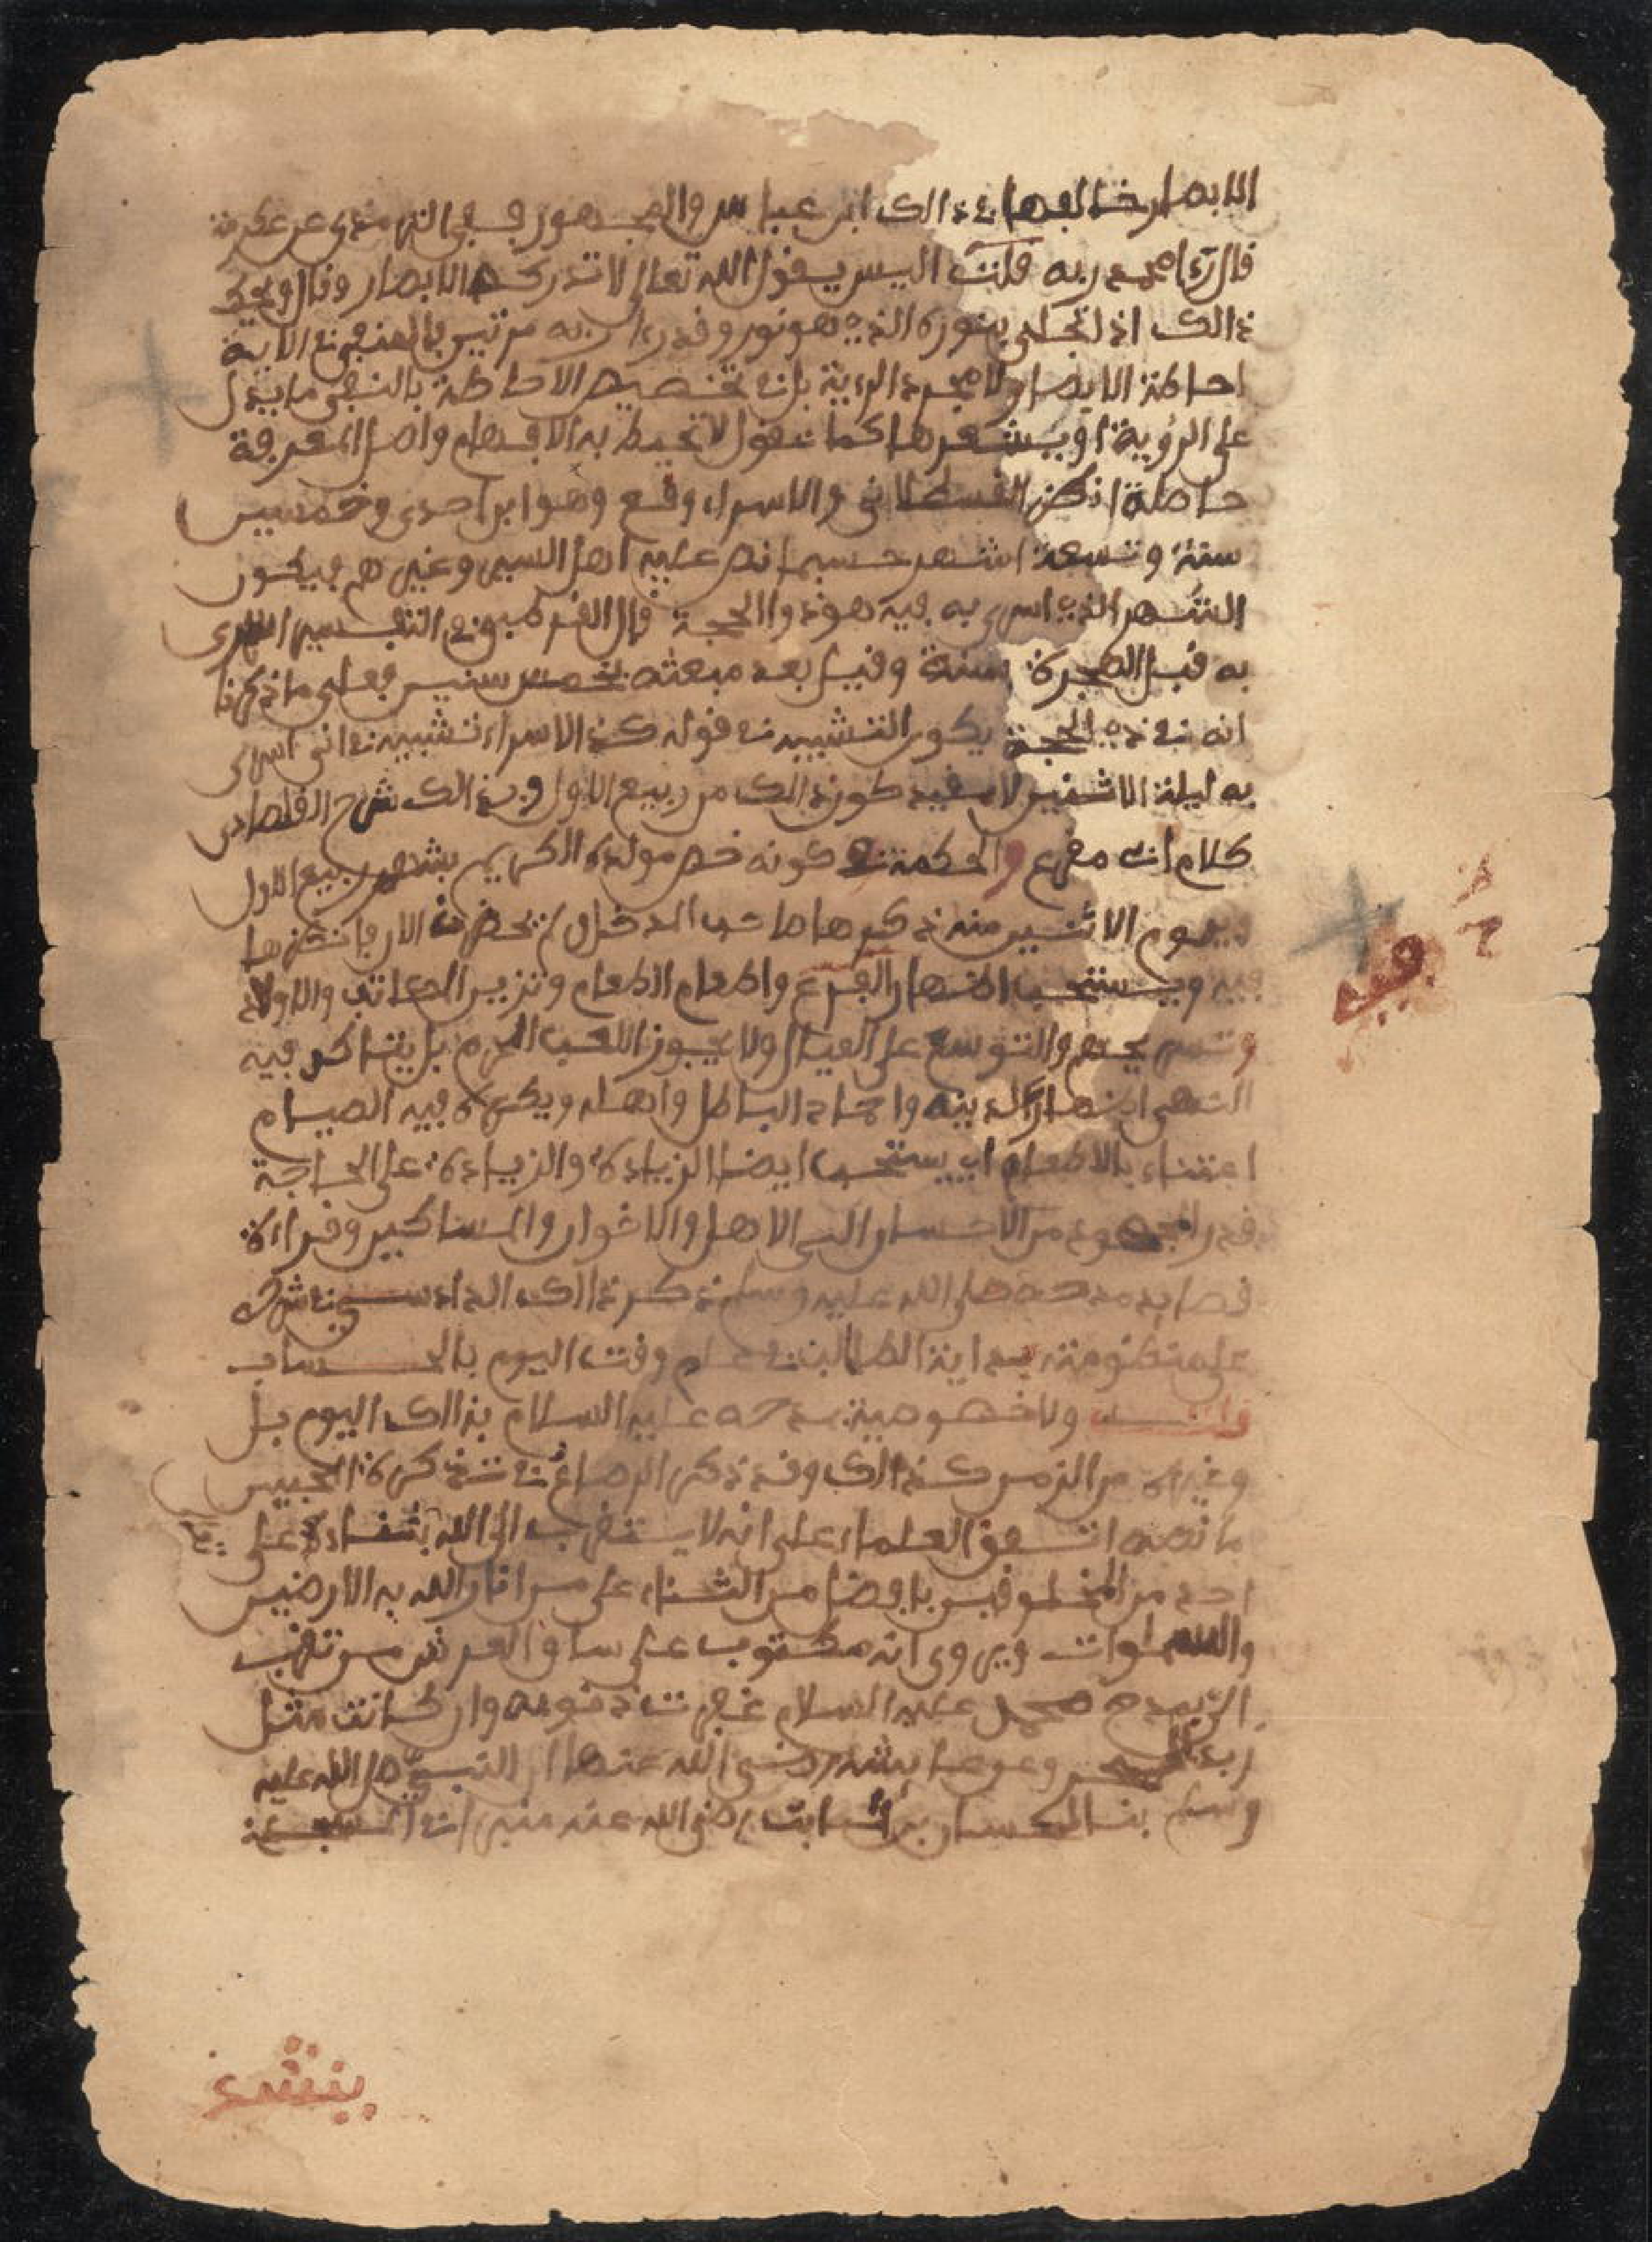 الابصار خالفها في ذالك ابن عباس والجمهور ففي الترمذي عن عكرمة
قال رءا محمد ربه قلت اليس يقول الله تعالى لا تدركه الابصار وقال ويحك
ذالك اذا تجلى بنوره الذي هو نور وقد رءا ربه مرتين فالمنفي في الاية
احاطة الابصار ولا مجرد الرءية بل في تخصيص الاحاطة بالنفي ما يدل
على الرؤية او يشعر بها كما تقول لا تحيط به الافهام واصل المعرفة
حاصلة اذكر القسطلاني والاسراء وقع وهو ابن احدى وخمسين
سنة وتسعة اشهر حسبما نص عليه اهل السير وغيرهم فيكون
الشهر الذي اسري به فيه هو ذوا الحجة قال القرطبي في التفسير اسري
به قبل الهجرة بسنة وقيل بعد مبعثه بخمس سنين فعلى ما ذكرنا
انه في ذي الحجة يكون التشبيه في قوله كذ الاسراء تشبيه في اني اسري
به ليلة الاثنين لا بقيد كون ذالك من ربيع الاول وفي ذالك شرح القلصادي
كلام انه مفرع والحكمة في كونه خص مولده الكريم بشهر ربيع الاول
وبيوم الاثنين منه ذكرها صاحب المدخل لم يحضرني الان فانظرها
فيه ويستحب اظهار الفرح واطعام الطعام وتزيين المكاتب والاولاد
والتوسع على العيال ولا يجوز اللعب المحرم بل يتذاكر فيه
النهي اظهارا لدينه واخماد الباطل واهله ويكره فيه الصيام
اعتناء بالاطعام اي يستحب ايضا الزيادة والزيادة على الحاجة
قدر المجهود من الاحسان الى الاهل والاخوان والمساكين وقراءة
قصايد مدحه صلى الله عليه وسلم ذكر ذالك الدادسي في شرحه
على منظومته بداية الطالب في علم وقت اليوم بالحساب
قلت ولا خصوصية بمدحه عليه السلام بذالك اليوم بل
وغيره من الزمن كذالك وقد ذكر الرصاع في تذكرة المحبين
ما نصه اتفق العلماء على انه لا يتقرب الى الله بشهادة على
احد من المخلوقين بافضل من الثناء على من انار الله به الارضين
والسماوات ويروى انه مكتوب على ساق العرش من تقرب
الي بمدح محمد عليه السلام غفرت ذنوبه وان كانت مثل
زبد البحر وعن عايشة رضي الله عنها ان النبي صلى الله عليه
وسلم بنا لحسان بن ثابت رضي الله عنه منبرا في المسجد
فيه
ينشد